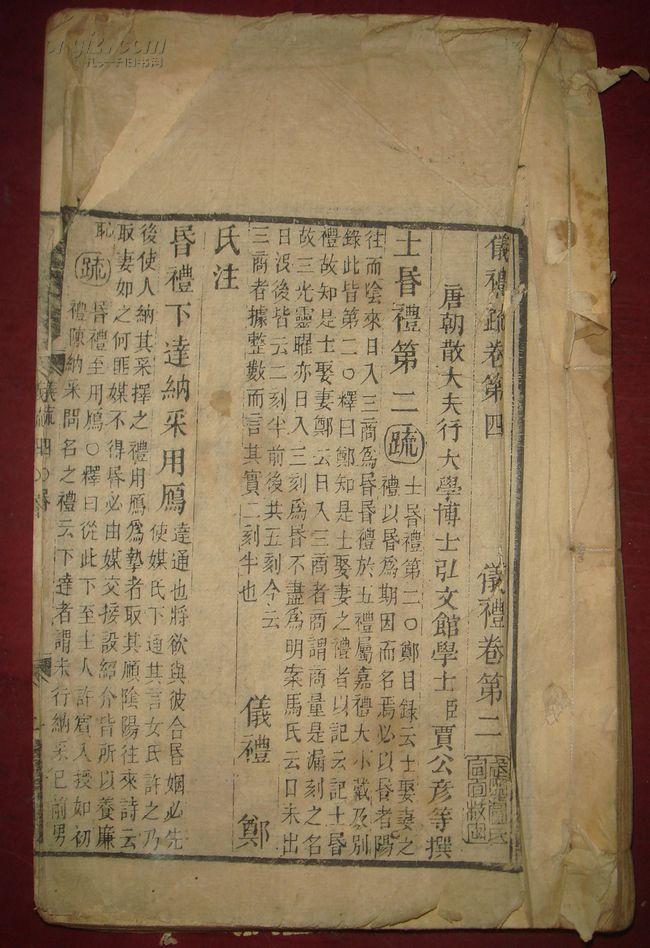 儀禮疏卷第四　儀禮卷第二
唐朝散大夫行大學博士弘文館學士臣賈公彥等撰
士昬禮第二疏士昬禮第二〇鄭目録云士娶妻之
禮以昬爲期因而名焉必以昬者陽
往而陰來日入三商爲昬昬禮於五禮屬嘉禮大小戴及別
錄此皆第二〇釋曰鄭知是士娶妻之禮者以記云記士昬
禮故知是士娶妻鄭云日入三商者商謂商量是漏刻之名
故三光靈曜亦日入三刻爲昬不盡爲明案馬氏云日未出
日沒後皆云二刻半前後共五刻今云
三商者據整數而言其實二刻半也
儀禮　鄭
氏注
昬禮下達納采用鴈達通也將欲與彼合昬姻必先
使媒氏下通其言女氏許之乃
後使人納其采擇之禮用鴈爲摯者取其順陰陽往來詩云
取妻如之何匪媒不得昬必由媒交接設紹介皆所以養廉
恥疏昬禮至用鴈〇釋曰從此下至主人許賓入授如初
禮陳納采問名之禮云下達者謂未行納采已前男